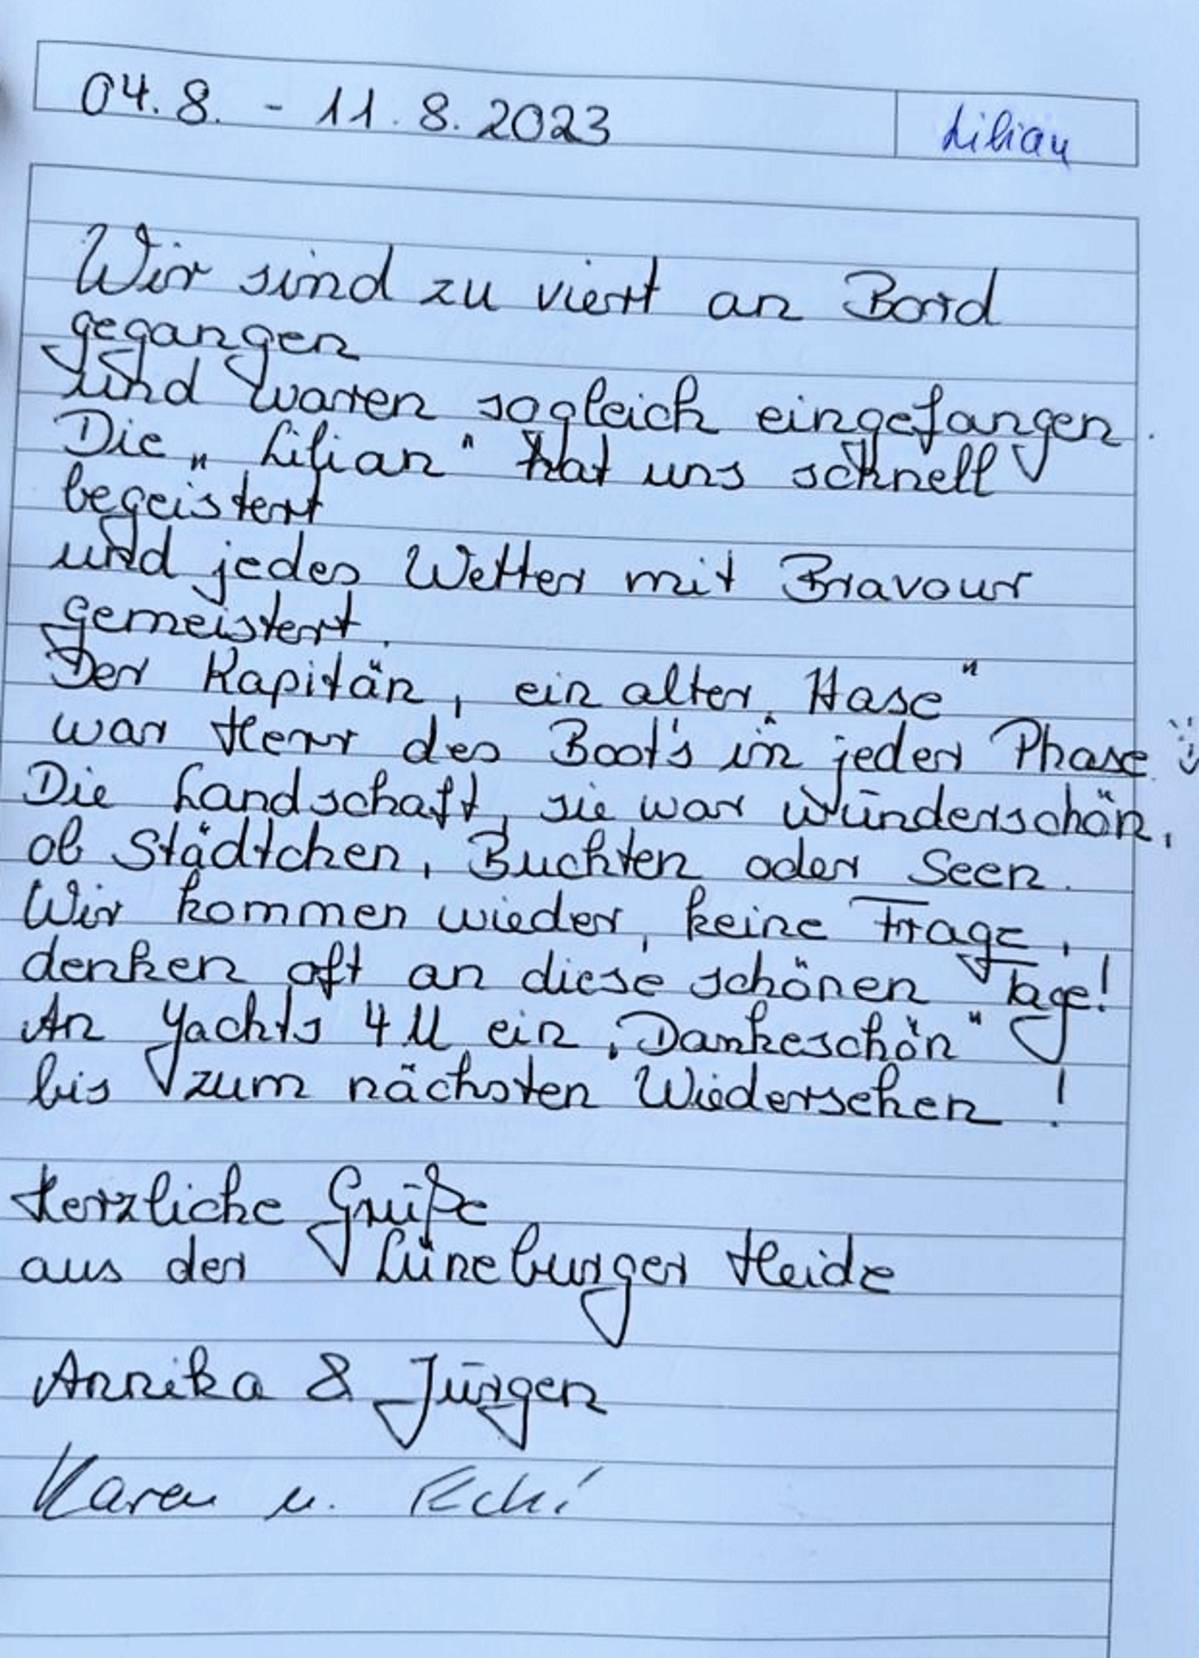 04.8. - 11.8.2023 Lilian
Wir sind zu viert an Bord
gegangen
und waren sogleich eingefangen.
Die „Lilian“ hat uns schnell
begeistert
und jedes Wetter mit Bravour
gemeistert.
Der Kapitän, ein alter „Hase“
war Herr des Boot's in jeder Phase :)
Die Landschaft, sie war wunderschön,
ob Städtchen, Buchten oder Seen.
Wir kommen wieder, keine Frage,
denken oft an diese schönen Tage!
An Yachts 4U ein „Dankeschön“
bis zum nächsten Wiedersehen!
Herzliche Grüße
aus der Lüneburger Heide
Annika & Jürgen
Karen u. Ecki